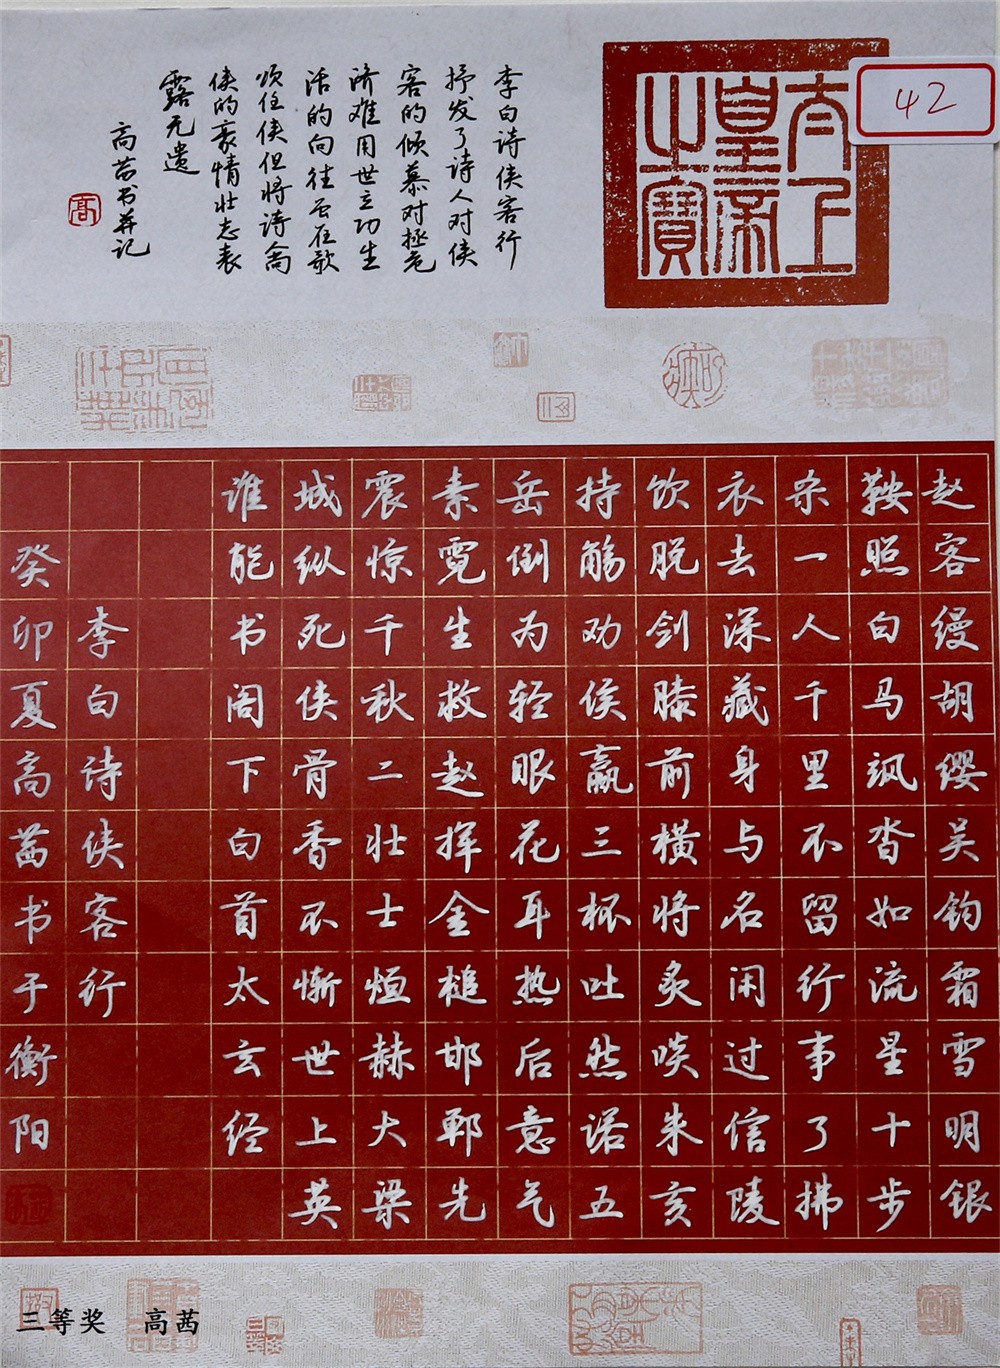 42
太上
皇帝
之寶
李白诗侠客行
抒发了诗人对侠
客的倾慕对拯危
济难用世立功生
活的向往在歌
颂任侠但将诗
侠的豪情壮志表
露无遗
高茜书并记
高
赵客缦胡缨吴钩霜雪明银
鞍照白马飒沓如流星十步
杀一人千里不留行事了拂
衣去深藏身与名闲过信陵
饮脱剑膝前横将炙啖朱亥
持觞劝侯嬴三杯吐然诺五
岳倒为轻眼花耳热后意气
素霓生救赵挥金槌邯郸先
震惊千秋二壮士烜赫大梁
城纵死侠骨香不惭世上英
谁能书阁下白首太玄经
李白诗侠客行
癸卯夏高茜书于衡阳
三等奖 高茜